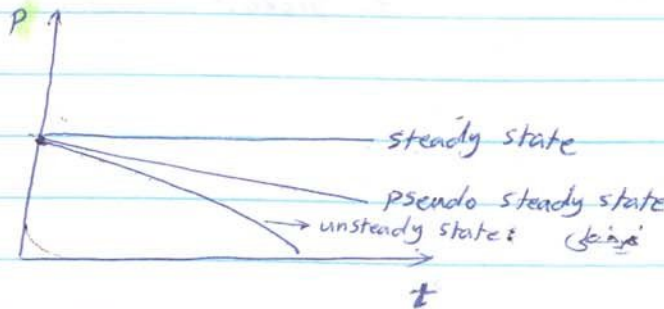 P
steady state
pseudo steady state
→ unsteady state:
t